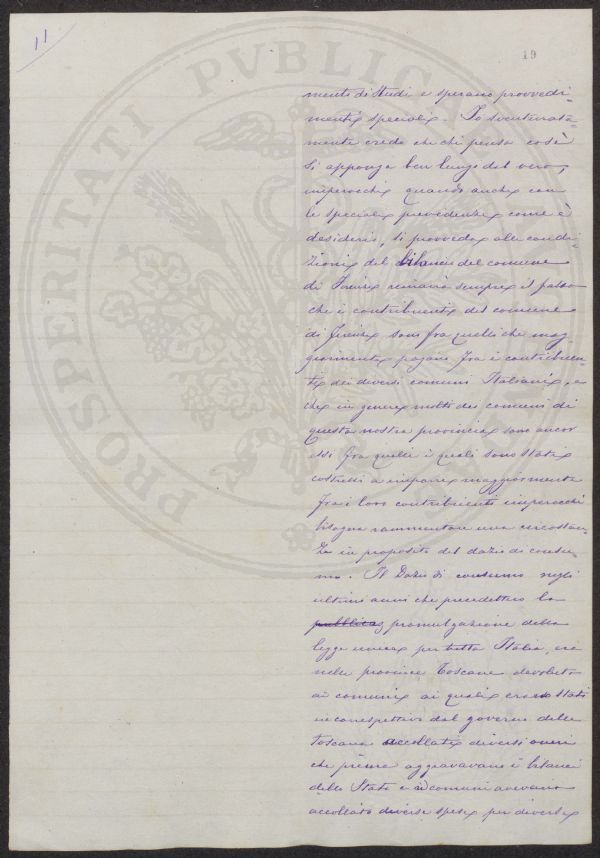 11
19
PROSPERITATI PVBLICAE
mento di studi e sperano provvedi-
menti speciali. Io sventurata-
mente credo che chi pensa così
si apponga ben lungi dal vero,
imperocchè quando anche con
le speciali provvidenze come è
desiderio, si provveda alle condi-
zioni del bilancio del comune
di Firenze rimarrà sempre il fatto
che i contribuenti del comune
di Firenze sono fra quelli che mag-
giormente pagano fra i contribuen-
ti dei diversi comuni Italiani, e
che in genere molti dei comuni di
questa nostra provincia sono ancor
essi fra quelli i quali sono stati
costretti a imporre maggiormente
fra i loro contribuenti imperocchè
bisogna rammentare una circostan-
za in proposito del dazio di consu-
mo. Il Dazio di consumo negli
ultimi anni che precedettero la
pubblicaz promulgazione della
legge unica per tutta Italia, era
nelle provincie Toscane devoluto
ai comuni ai quali erano stati
in correspettivo dal governo della
Toscana accollati diversi oneri
che prima aggravavano i bilanci
dello Stato e ai comuni avevano
accollato diverse spese per diversi